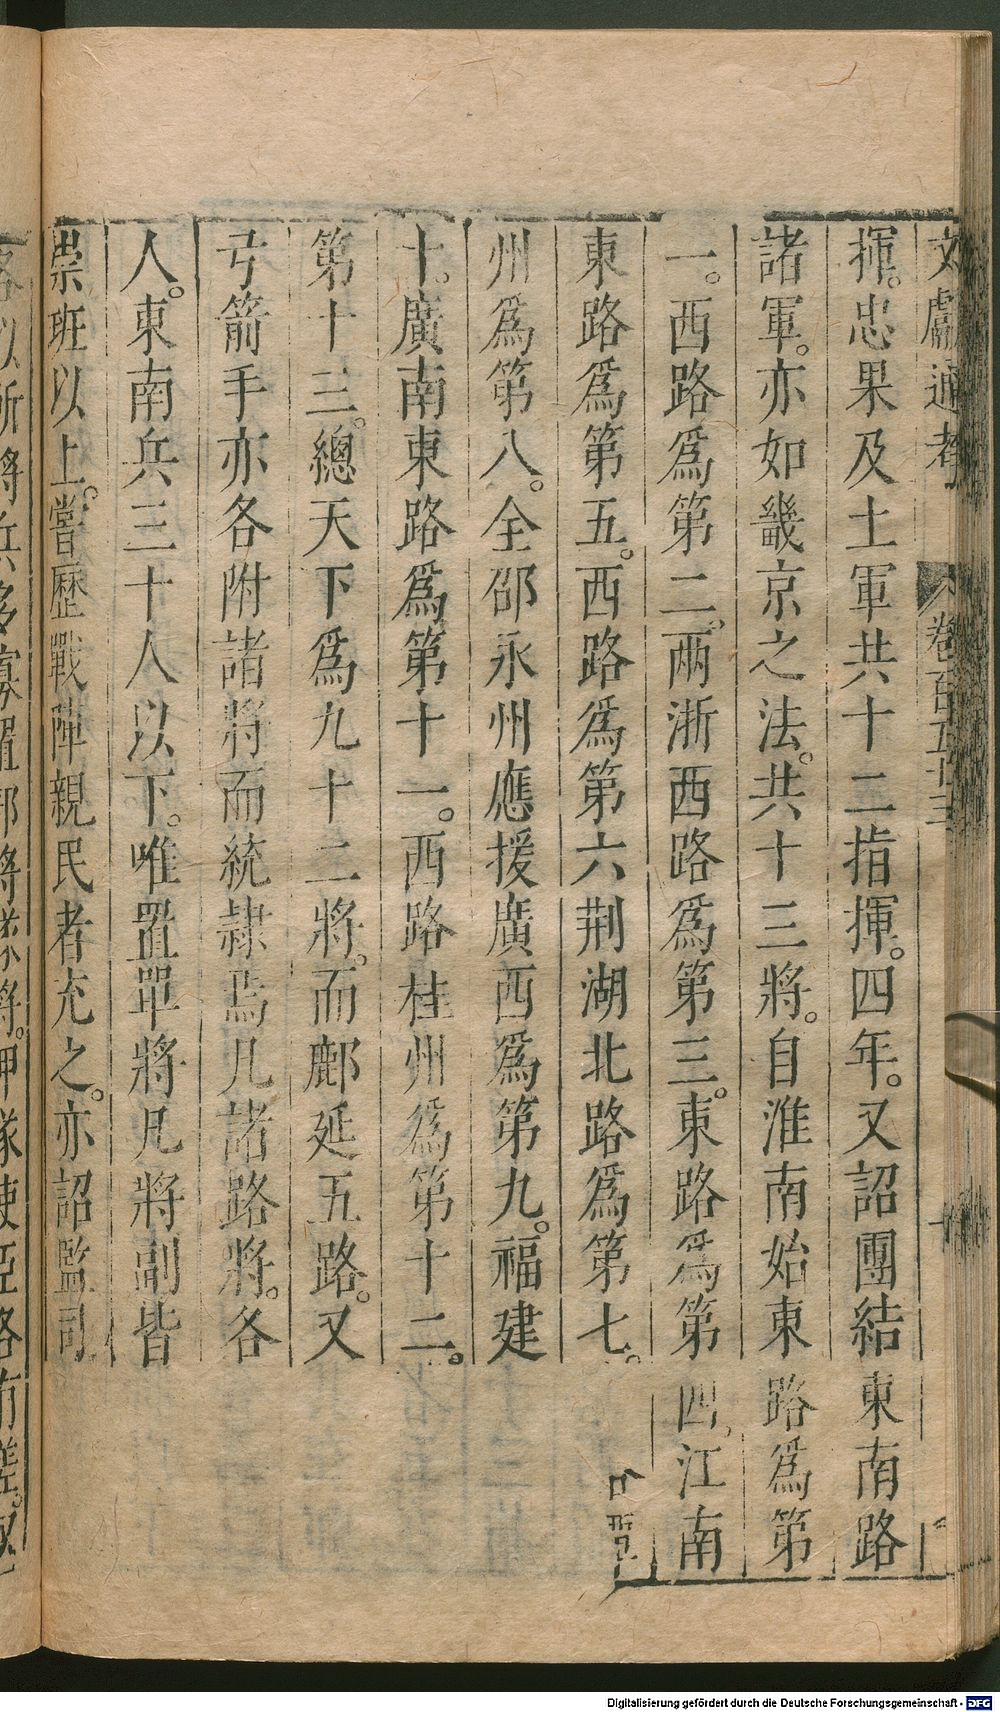 文獻通考 卷百五十三
揮。忠果及土軍共十二指揮。四年。又詔團結東南路
諸軍。亦如畿京之法。共十三將。自淮南始東路爲第
一。西路爲第二。兩浙西路爲第三。東路爲第四。江南
東路爲第五。西路爲第六荆湖北路爲第七。
州爲第八。全邵永州應援廣西爲第九。福建
十。廣南東路爲第十一。西路桂州爲第十二。
第十三。總天下爲九十二將。而鄜延五路。又
弓箭手亦各附諸將而統隷焉凡諸路將。各
人。東南兵三十人以下。唯置單將凡將副皆
崇班以上。嘗歷戰陣親民者充之。亦詔監司
以所將兵多寡置部將隊將押隊使臣各有差。
Digitalisierung gefördert durch die Deutsche Forschungsgemeinschaft - DFG